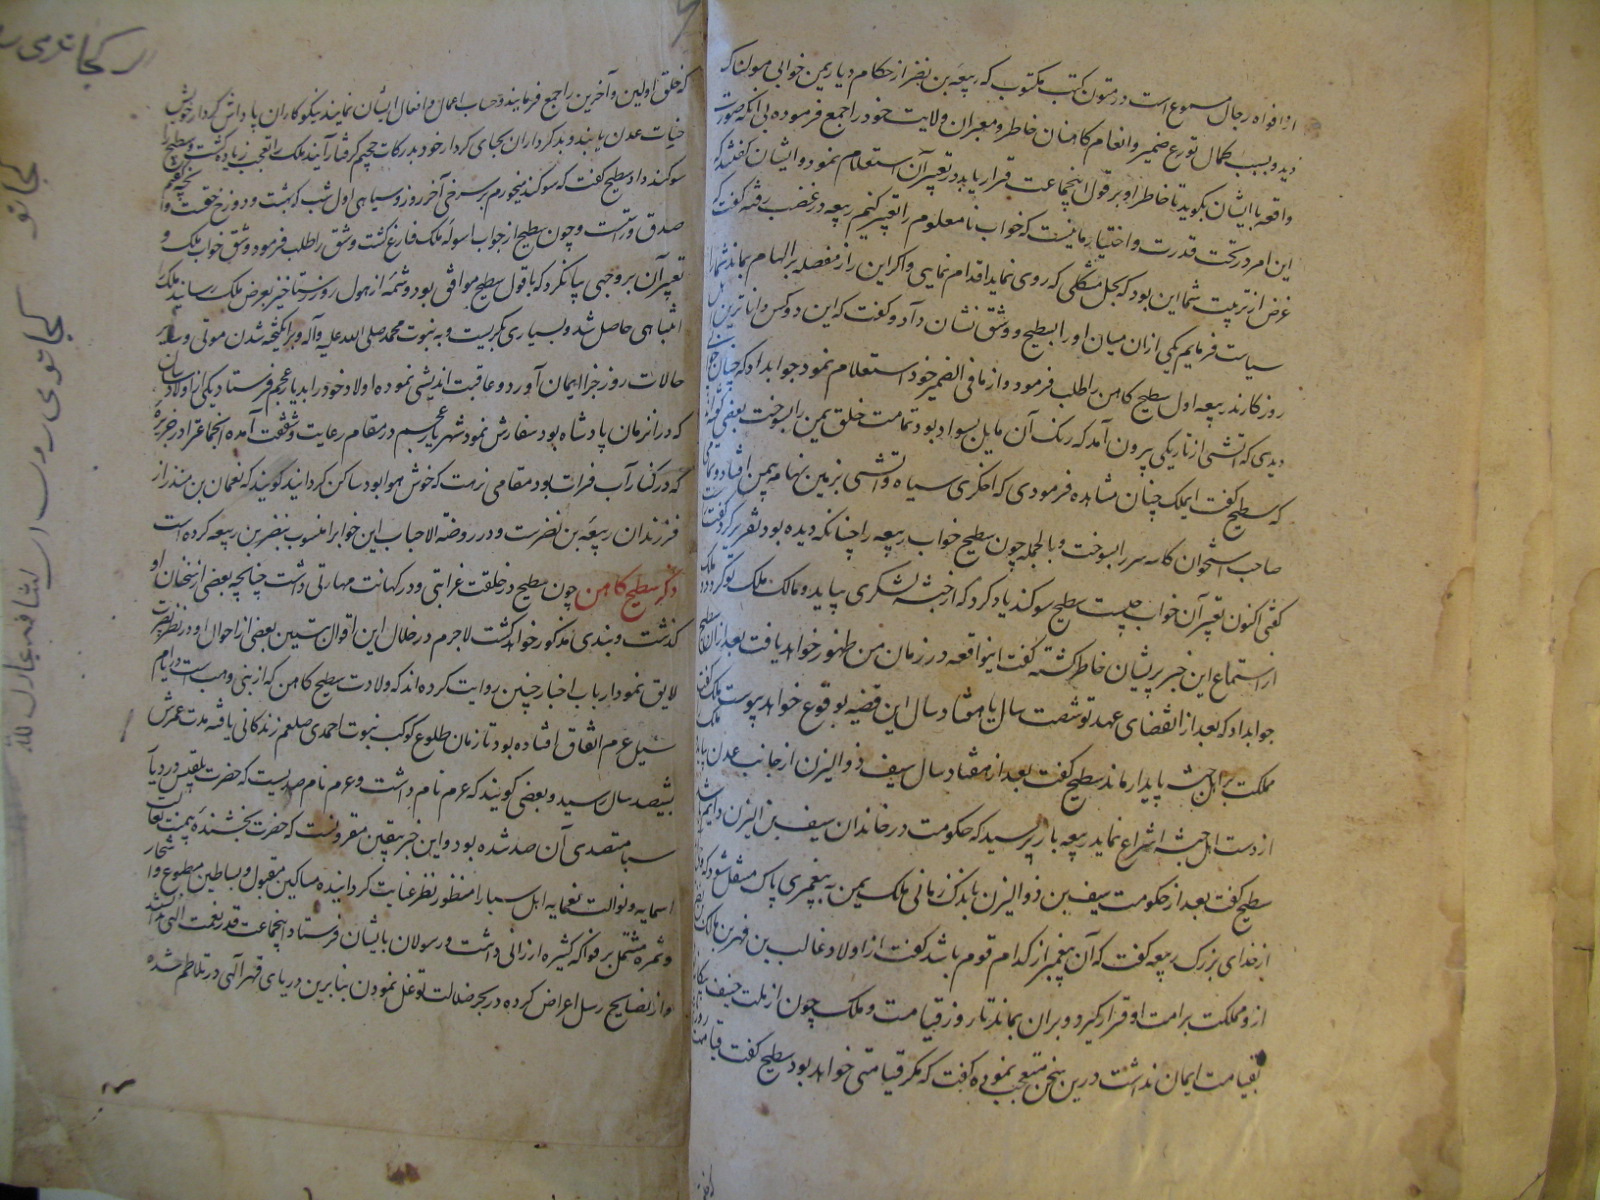 از افواه رجال مسموع است و در متون کتب مکتوب که ربیعه بن نضر از حکام دیار یمن خوابی هولناک
دید و بسبب کمال توزع ضمیر و انعام کاهنان خاطر و معبران ولایت خود را جمع فرموده بی آنکه صورت
واقعه با ایشان بگوید تا خاطر او بر قول اینجماعت قرار یابد در تعبیر آن استعلام نمود و ایشان گفتند که
این امر در تحت قدرت و اختیار ما نیست که خواب نامعلوم را تعبیر کنیم ربیعه در غضب رفته گفت که
غرض از تربیت شما این بود که بحل مشکلی که روی نماید اقدام نمایی و اکر این راز مفصله بر ابهام بماند شما را
سیاست فرمایم یکی ازان میان او را بسطیح و وشق نشان داد و گفت که این دو کس داناترین اهل
روزکارند ربیعه اول سطیح کاهن را طلب فرمود و از ما فی الضمیر خود استعلام نمود جوابداد که چنان
دیدی که آتشی از تاریکی بیرون آمد که رنک آن مایل بسواد بود و تمامت خلق یمن را بسوخت بعضی گویند
که سطیح گفت ایملک چنان مشاهده فرمودی که اخکری سیاه و آتشی بزمین تهامه یمن افتاد و تمامی
صاحب استخوان کاسه سر را بسوخت و بالجمله چون سطیح خواب ربیعه را چنانکه دیده بود تقریر کرد گفت
گفتی اکنون تعبیر آن خواب چیست سطیح سوکند یاد کرد که از حبشه لشکری بیاید و ممالک ملک تو گیرد و ملک
از استماع این خبر پریشان خاطر گشته گفت اینواقعه در زمان من ظهور خواهد یافت یا بعد ازان سطیح
جوابداد که بعد از انقضای عهد تو شصت سال یا هفتاد سال این قضیه بوقوع خواهد پیوست ملک گفت
مملکت بر اهل حبشه پایدار ماند سطیح گفت بعد از هفتاد سال سیف ذو الیزن از جانب عدن بیاید
از دست اهل حبشه انتزاع نماید ربیعه باز پرسید که حکومت در خاندان سیف بن الیزن دایم باشد
سطیح گفت بعد از حکومت سیف بن ذو الیزن باندک زمانی ملک یمن به پیغمبری پاک منتقل شود که
از خدای بزرک ربیعه گفت که آن پیغمبر از کدام قوم باشد گفت از اولاد غالب بن فهر بن مالک
ازو مملکت بر امت او قرار گیرد و بران بماند تا روز قیامت و ملک چون از ملت حنیف
بقیامت ایمان نداشت درین سخن متعجب نموده گفت که مکر قیامتی خواهد بود سطیح گفت
که خلق اولین و آخرین را جمع فرمایند و حساب اعمال و افعال ایشان نمایند نیکوکاران پاداش کردار خویش
جنات عدن یابند و بدکرداران بجای کردار خود بدرکات جحیم گرفتار آیند ملک را تعجب زیاده گشت و سطیح را
سوکند داد سطیح گفت که سوکند میخورم بسرخی آخر روز و سیاهی اول شب که بهشت و دوزخ حقست و آنچه گفتم
صدق و راست و چون سطیح از جواب اسوله ملک فارغ گشت وشق را طلب فرمود وشق خواب ملک و
تعبیر آن بر وجهی بیان کرد که با قول سطیح موافق بود و شمه از هول روز رستاخیز بعرض ملک رسانید ملک
انتباهی حاصل شد و بسیاری بگریست و به نبوت محمد صلی الله علیه و آله و برانکیخته شدن موتی و سایر
حالات روز جزا ایمان آورد و عاقبت اندیشی نموده اولاد خود را بدیار عجم فرستاد و یکی از اولاد ساسان
که در انزمان پادشاه بود سفارش نمود شهریار عجم رسم در مقام رعایت و شفقت آمده انجماعترا در جزیره
که در کنار آب فرات بود مقامی نزهت که خوش هوا بود ساکن کردانید کویند که نعمان بن منذر از
فرزندان ربیعه بن نضرست و در روضة الاحباب این خوابرا منسوب بنضر بن ربیعه کرده است
ذکر سطیح کاهن چون سطیح در خلقت غرابتی و در کهانت مهارتی داشت چنانچه بعضی از سخنان او
گذشت و بندی مذکور خواهد گشت لاجرم در خلال این اقوال تبیین بعضی از احوال او در نظر بصیرت
لایق نمود ارباب اخبار چنین روایت کرده اند که ولادت سطیح کاهن که از بنی و هب است در ایام
سیل عرم اتفاق افتاده بود تا زمان طلوع کوکب نبوت احمدی صلعم زندکانی یافته مدت عمرش
بششصد سال رسید و بعضی کویند که عرم نام داشت و عرم نام صدیست که حضرت بلقیس در دیار
سبا متصدی آن صد شده بود و این خبر بیقین مقرونست که حضرت بخشنده بیمنت تعالت
اسمایه و توالت نعمایه اهل سبا را منظور نظر عنایت کردانیده مساکین مقبول و بساطین مطبوع و اشجار
و ثمره مشتمل بر فواکه کثیره ارزانی داشت و رسولان بایشان فرستاد اینجماعت قدر نعمت الهی ندانستند
و از نصایح رسل اعراض کرده در بحر ضلالت توغل نمودن بنابرین دریای قهر الهی در تلاطم شده